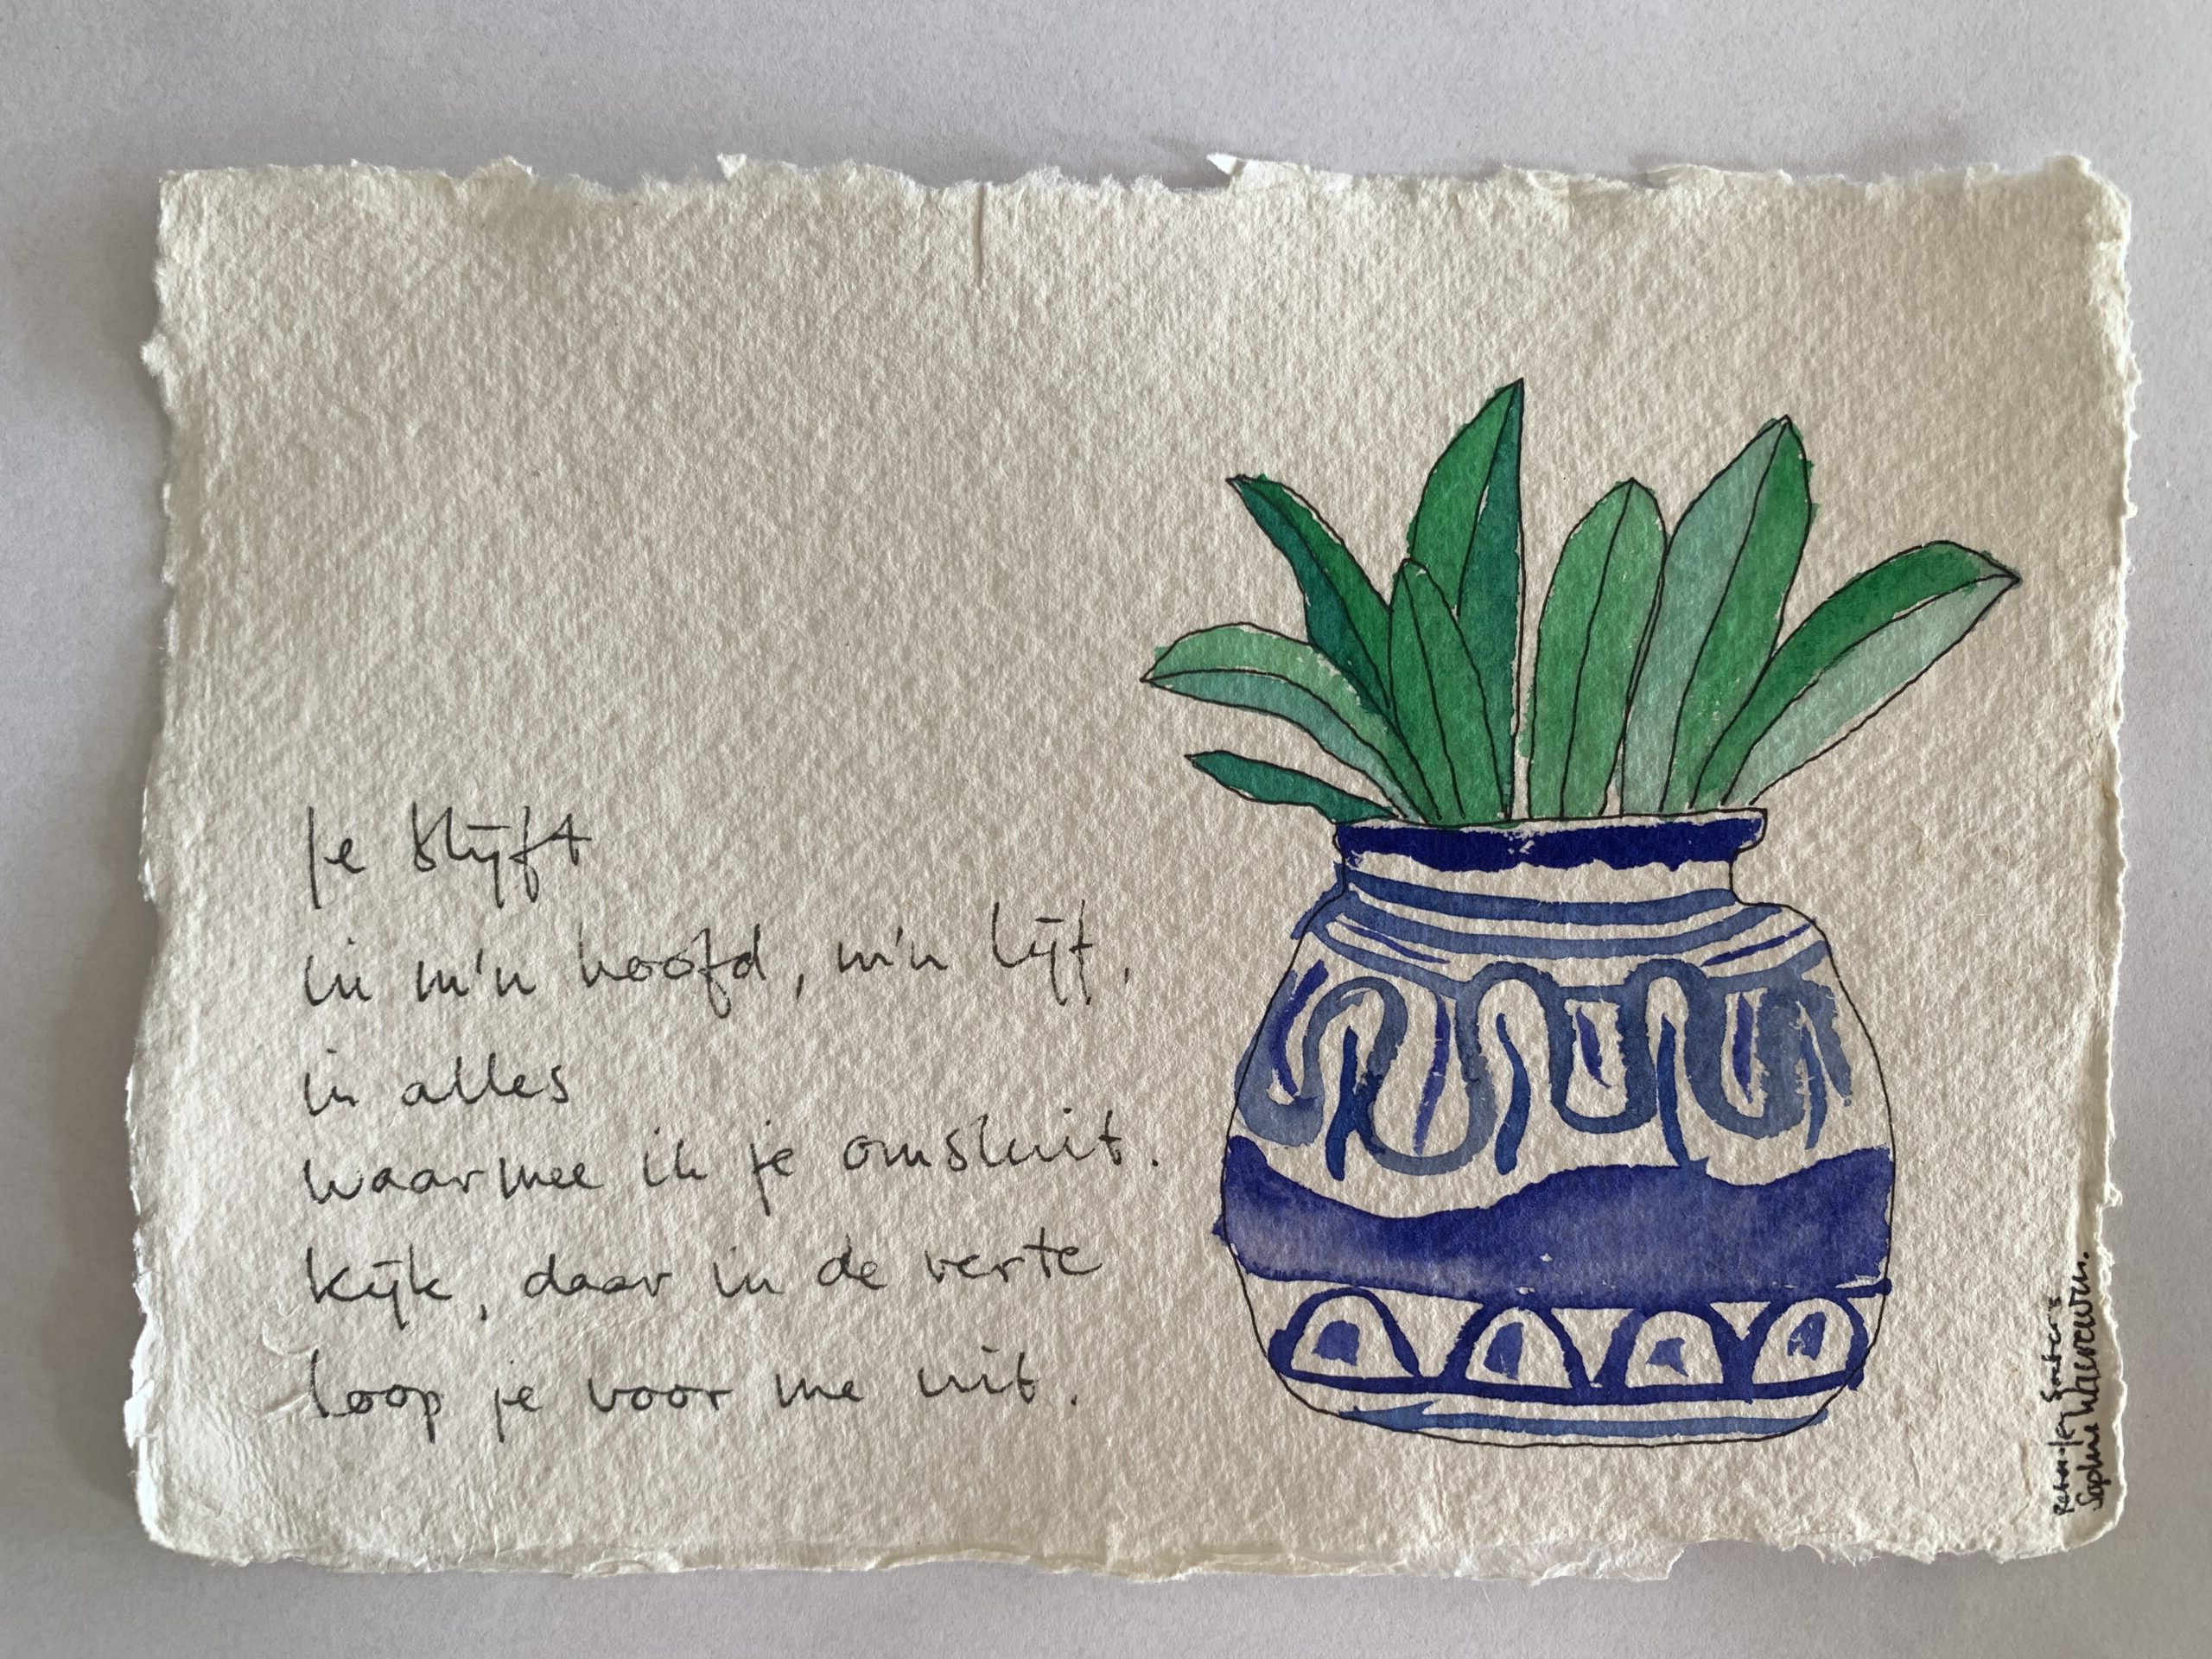 Je blijft
in m'n hoofd, m'n lijf,
in alles
waarmee ik je omsluit.
kijk, daar in de verte
loop je voor me uit.
Sophie